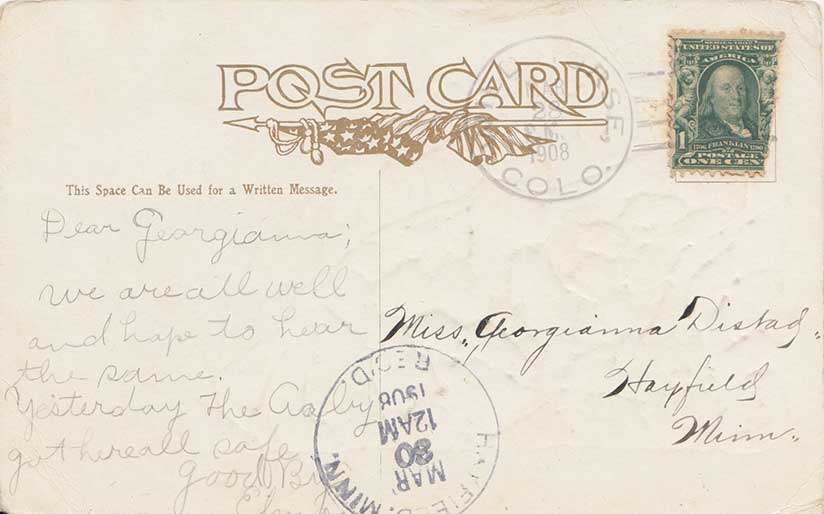 POST CARD
28
1908
COLO.
SERIES 1902
UNITED STATES OF
AMERICA
1
FRANKLIN
POSTAGE
ONE CENT
This Space Can Be Used for a Written Message.
Dear Georgianna;
we are all well
and hope to hear
the same.
Yesterday The
got here all safe
Good By
Miss. Georgianna Distad.
Hayfield
Minn.
HAYFIELD, MINN.
MAR
30
12AM
1908
REC'D.